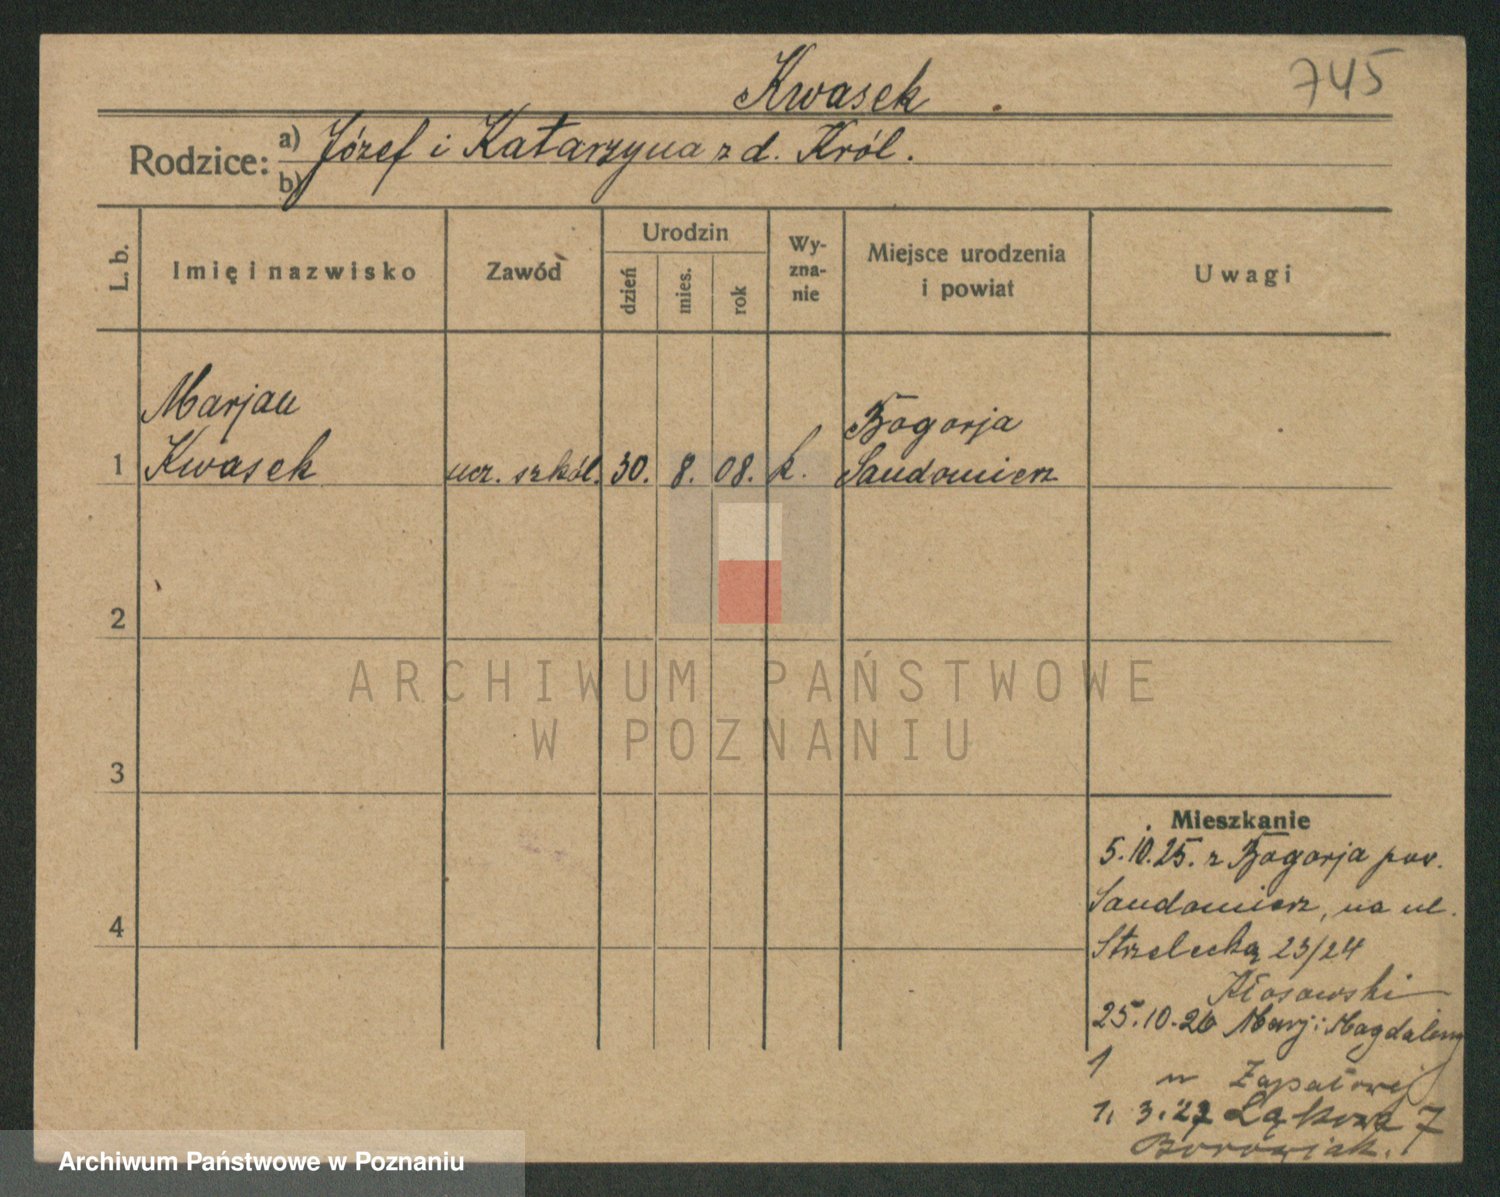 745
Kwasek
Rodzice: a) Józef i Katarzyna z d. Król.
b)
L. b.
Imię i nazwisko
Zawód
Urodzin
dzień
mies.
rok
Wy-
zna-
nie
Miejsce urodzenia
i powiat
Uwagi
Marjan
1 Kwasek
ucz. szkól.
30. 8. 08. k.
Bogorja
Sandomierz
2
3
4
ARCHIWUM PAŃSTWOWE
W POZNANIU
Mieszkanie
5.10.25. z Bogorja pow.
Sandomierz, na ul.
Strzelecką 23/24
Kłosowski
25.10.26 Marji Magdaleny
1 u Zapałowej
1. 3. 27 Łąkowa 7
Borowiak.
Archiwum Państwowe w Poznaniu